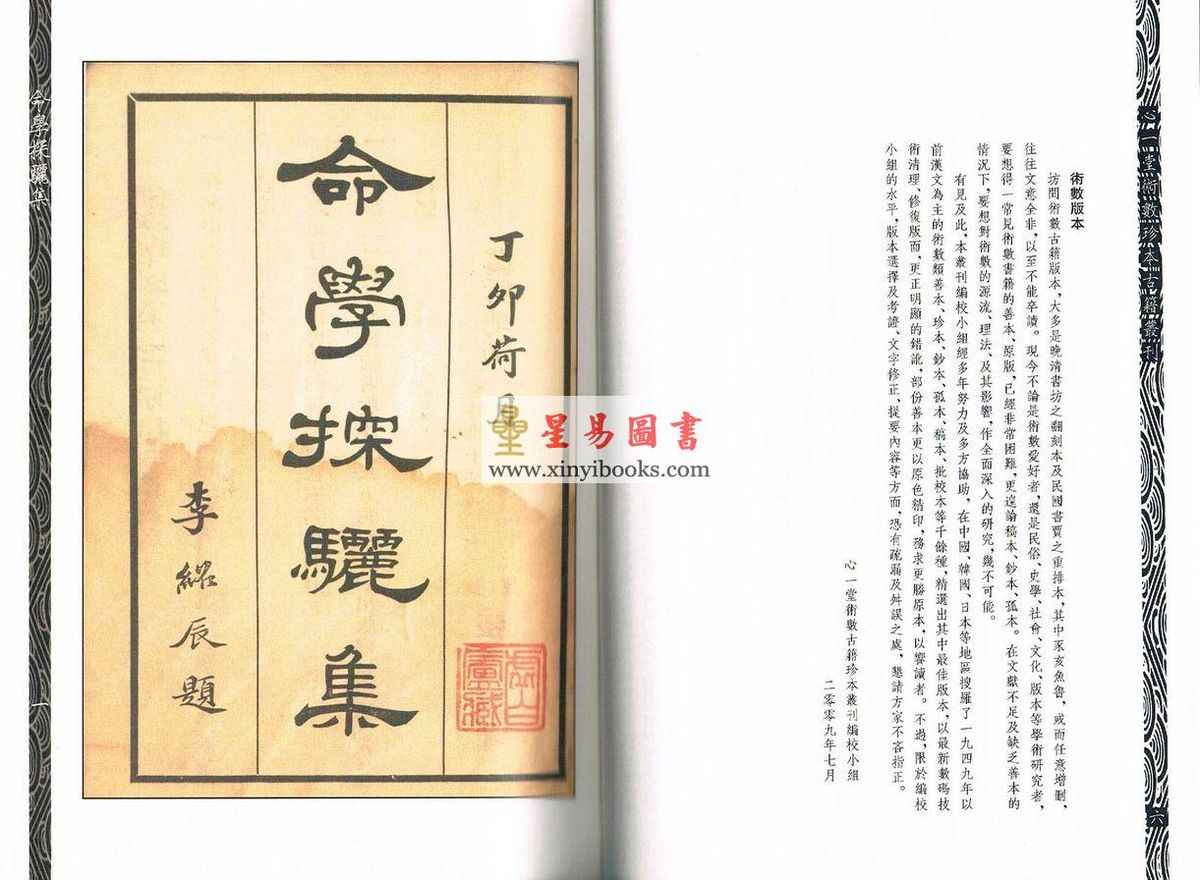 心一堂術數珍本古籍叢刊
六
術數版本
坊間術數古籍版本,大多是晚清書坊之翻刻本及民國書賈之重排本,其中豕亥魚魯,或而任意增刪,
往往文意全非,以至不能卒讀。現今不論是術數愛好者,還是民俗、史學、社會、文化、版本等學術研究者,
要想得一常見術數書籍的善本、原版,已經非常困難,更遑論稿本、鈔本、孤本。在文獻不足及缺乏善本的
情況下,要想對術數的源流、理法、及其影響,作全面深入的研究,幾不可能。
有見及此,本叢刊編校小組經多年努力及多方協助,在中國、韓國、日本等地區搜羅了一九四九年以
前漢文為主的術數類善本、珍本、鈔本、孤本、稿本、批校本等千餘種,精選出其中最佳版本,以最新數碼技
術清理、修復版面,更正明顯的錯訛,部份善本更以原色精印,務求更勝原本,以饗讀者。不過,限於編校
小組的水平,版本選擇及考證、文字修正、提要內容等方面,恐有疏漏及舛誤之處,懇請方家不吝指正。
心一堂術數古籍珍本叢刊編校小組
二零零九年七月
丁卯荷月
命學探驪集
李綛辰題
命學探驪集
一
星易圖書
www.xinyibooks.com